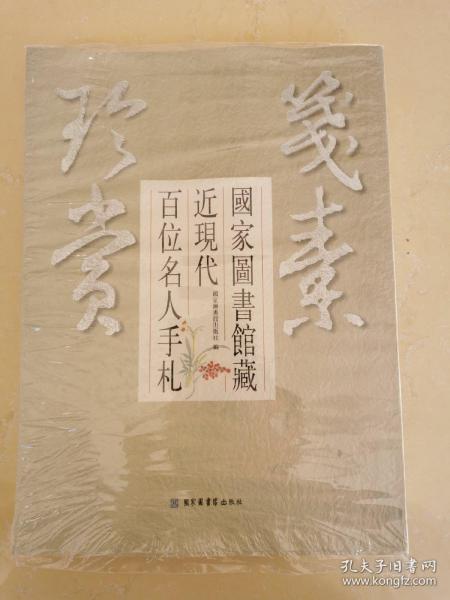 箋素
珍賞
國家圖書館藏
近現代
百位名人手札
國家圖書館出版社 編
國家圖書館出版社
孔夫子旧书网
www.kongfz.com